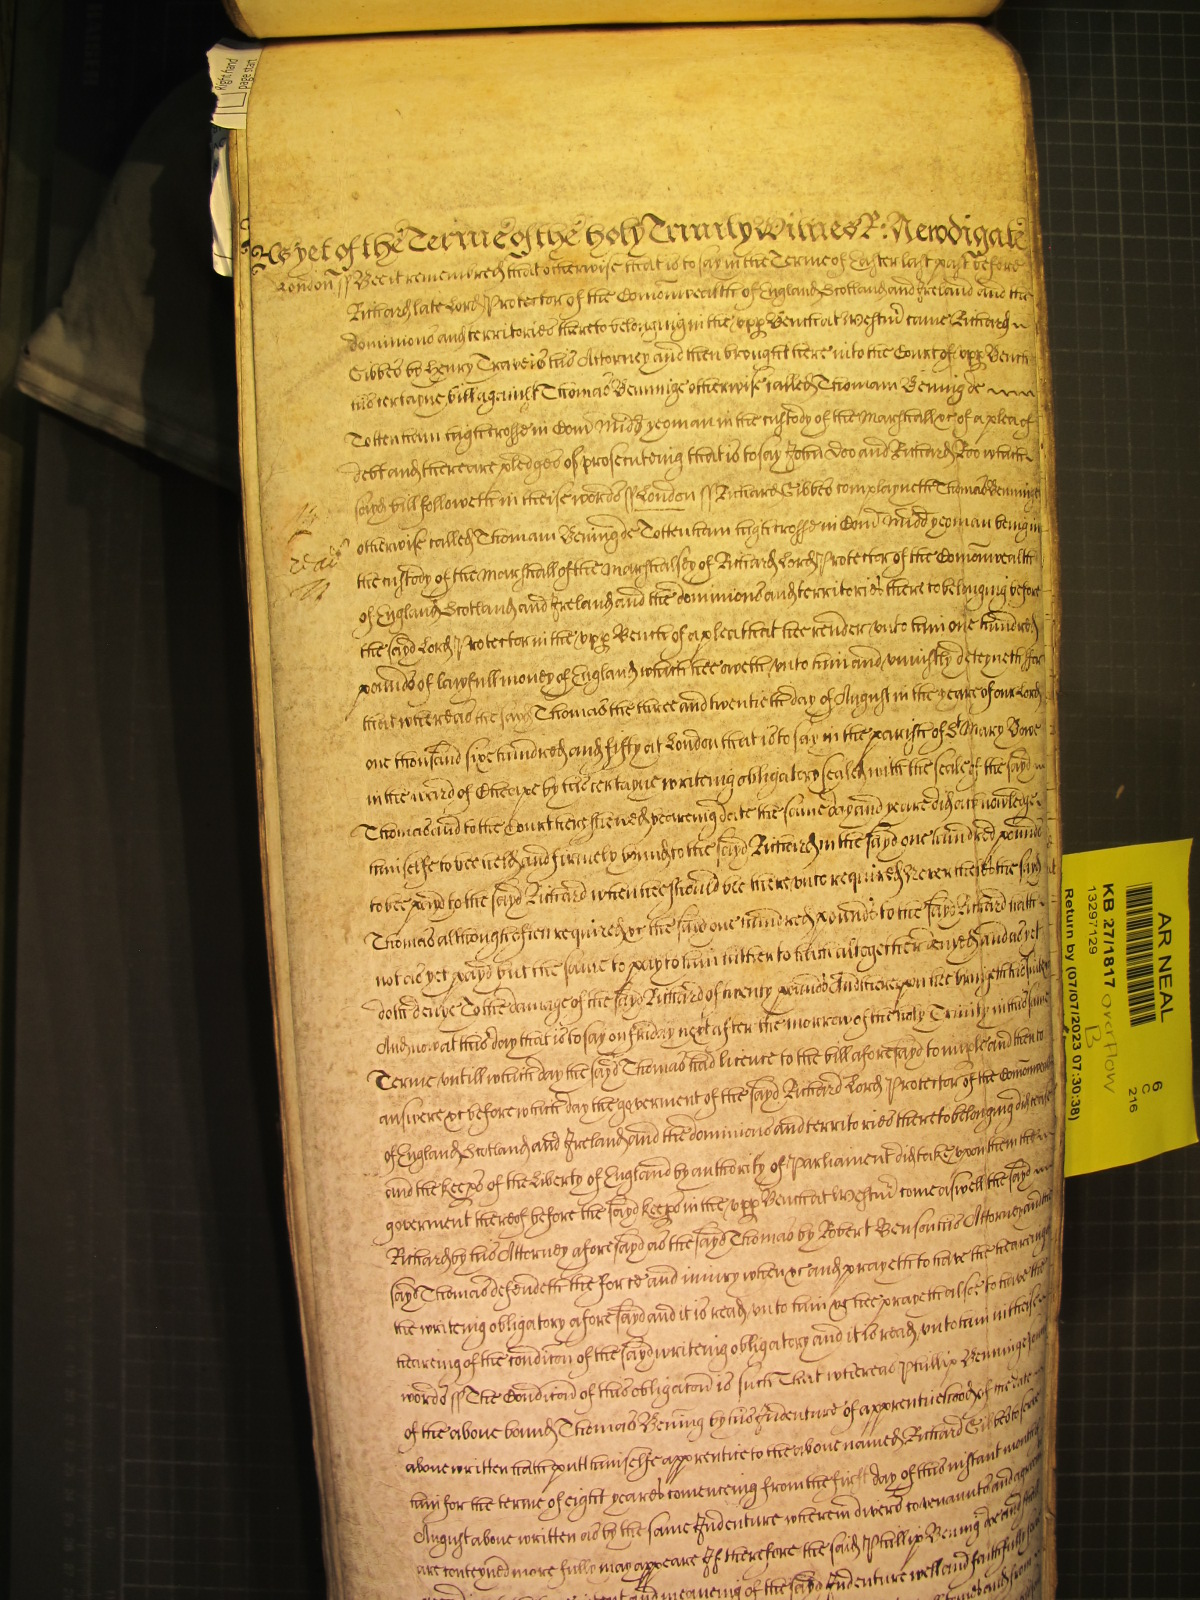 As yet of the Terme of the holy Trinity Witnes R: Newdigate
London ss Bee it remembred that otherwise that is to say in the Terme of Easter last past before
Richard late Lord Protector of the Comonwealth of England Scotland and Ireland and the
dominions and territories thereto belonging in the upp Bench at Westm came Richard
Gibbes by Henry Travers his Attorney and then brought here into the Court of upp Bench
his certayne bill against Thomas Benninge otherwise called Thomam Bening de
Tottenham high Crosse in Com Midd yeoman in the custody of the Marshall &c of a plea of
debt and there are pledges of prosecuteing that is to say John Doo and Richard Roo which
sayd bill followeth in theise words ss London ss Richard Gibbes complayneth Thomas Benninge
otherwise called Thomam Bening de Tottenham high crosse in Com Midd yeoman being in
the custody of the Marshall of the Marshalsey of Richard Lord Protector of the Comonwealth
of England Scotland and Ireland and the dominions and territories thereto belonging before
the sayd Lord Protector in the upp Bench of a plea that hee render unto him one hundred
pounds of lawfull money of England which hee oweth unto him and uniustly deteyneth for
that whereas the sayd Thomas the three and twentieth day of August in the yeare of our Lord
one thousand six hundred and fifty at London that is to say in the parish of St Mary Bowe
in the ward of Cheape by his certayne writeing obligatory sealed with the seale of the sayd
Thomas and to the Court here shewed beareing date the same day and yeare did acknowledge
himselfe to bee held and firmely bound to the sayd Richard in the sayd one hundred pounds
to bee payd to the sayd Richard when hee should bee thereunto required Neverthelesse the sayd
Thomas although often required &c the said one hundred pounds to the sayd Richard hath
not as yet payd but the same to pay to him hitherto hath altogether denyed and as yet
doth denye To the damage of the sayd Richard of twenty pounds And thereupon hee bringeth his suite
And now at this day that is to say on Friday next after the morrow of the holy Trinity in this same
Terme untill which day the sayd Thomas had licence to the bill aforesayd to imple and then to
answere &c before which day the goverment of the sayd Richard Lord Protector of the Comonwealth
of England Scotland and Ireland and the dominions and territories thereto belonging did cease
and the keeps of the Liberty of England by authority of Parliament did take upon them the
goverment thereof before the sayd keeps in the upp Bench at Westm come aswell the sayd
Richard by his Attorney aforesayd as the sayd Thomas by Robert Benson his Attorney and the
sayd Thomas defendeth the force and iniury when &c and prayeth to have the heareinge
the writeing obligatory aforesayd and it is read unto him &c hee prayeth alsoe to have the
heareing of the condition of the sayd writeing obligatory and it is read unto him in theise
words ss The Condicon of this obligacon is such That whereas Phillip Benninge
of the above bound Thomas Bening by his Indenture of apprenticehood of the date
above written hath putt himselfe apprentice to the above named Richard Gibbes to serve
him for the terme of eight yeares comenceing from the first day of this instant month
August above written as by the same Indenture wherein divers covenaunts and agreem
are conteyned more fully may appeare If therefore the said Phillip Bening
and meaneing of the sayd Indenture well and faithfully
Right hand
page start
AR NEAL
KB 27/1817 overflow
B
13297129
Return by (07/07/2023 07:30:38)
6
C
216